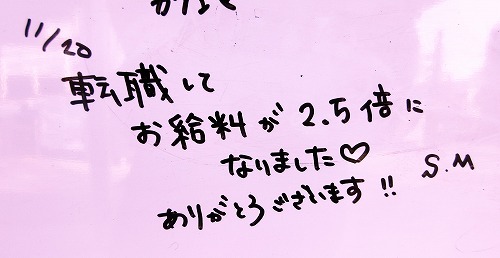 11/20
転職して
お給料が2.5倍に
なりました♡
ありがとうございます!!
S.M